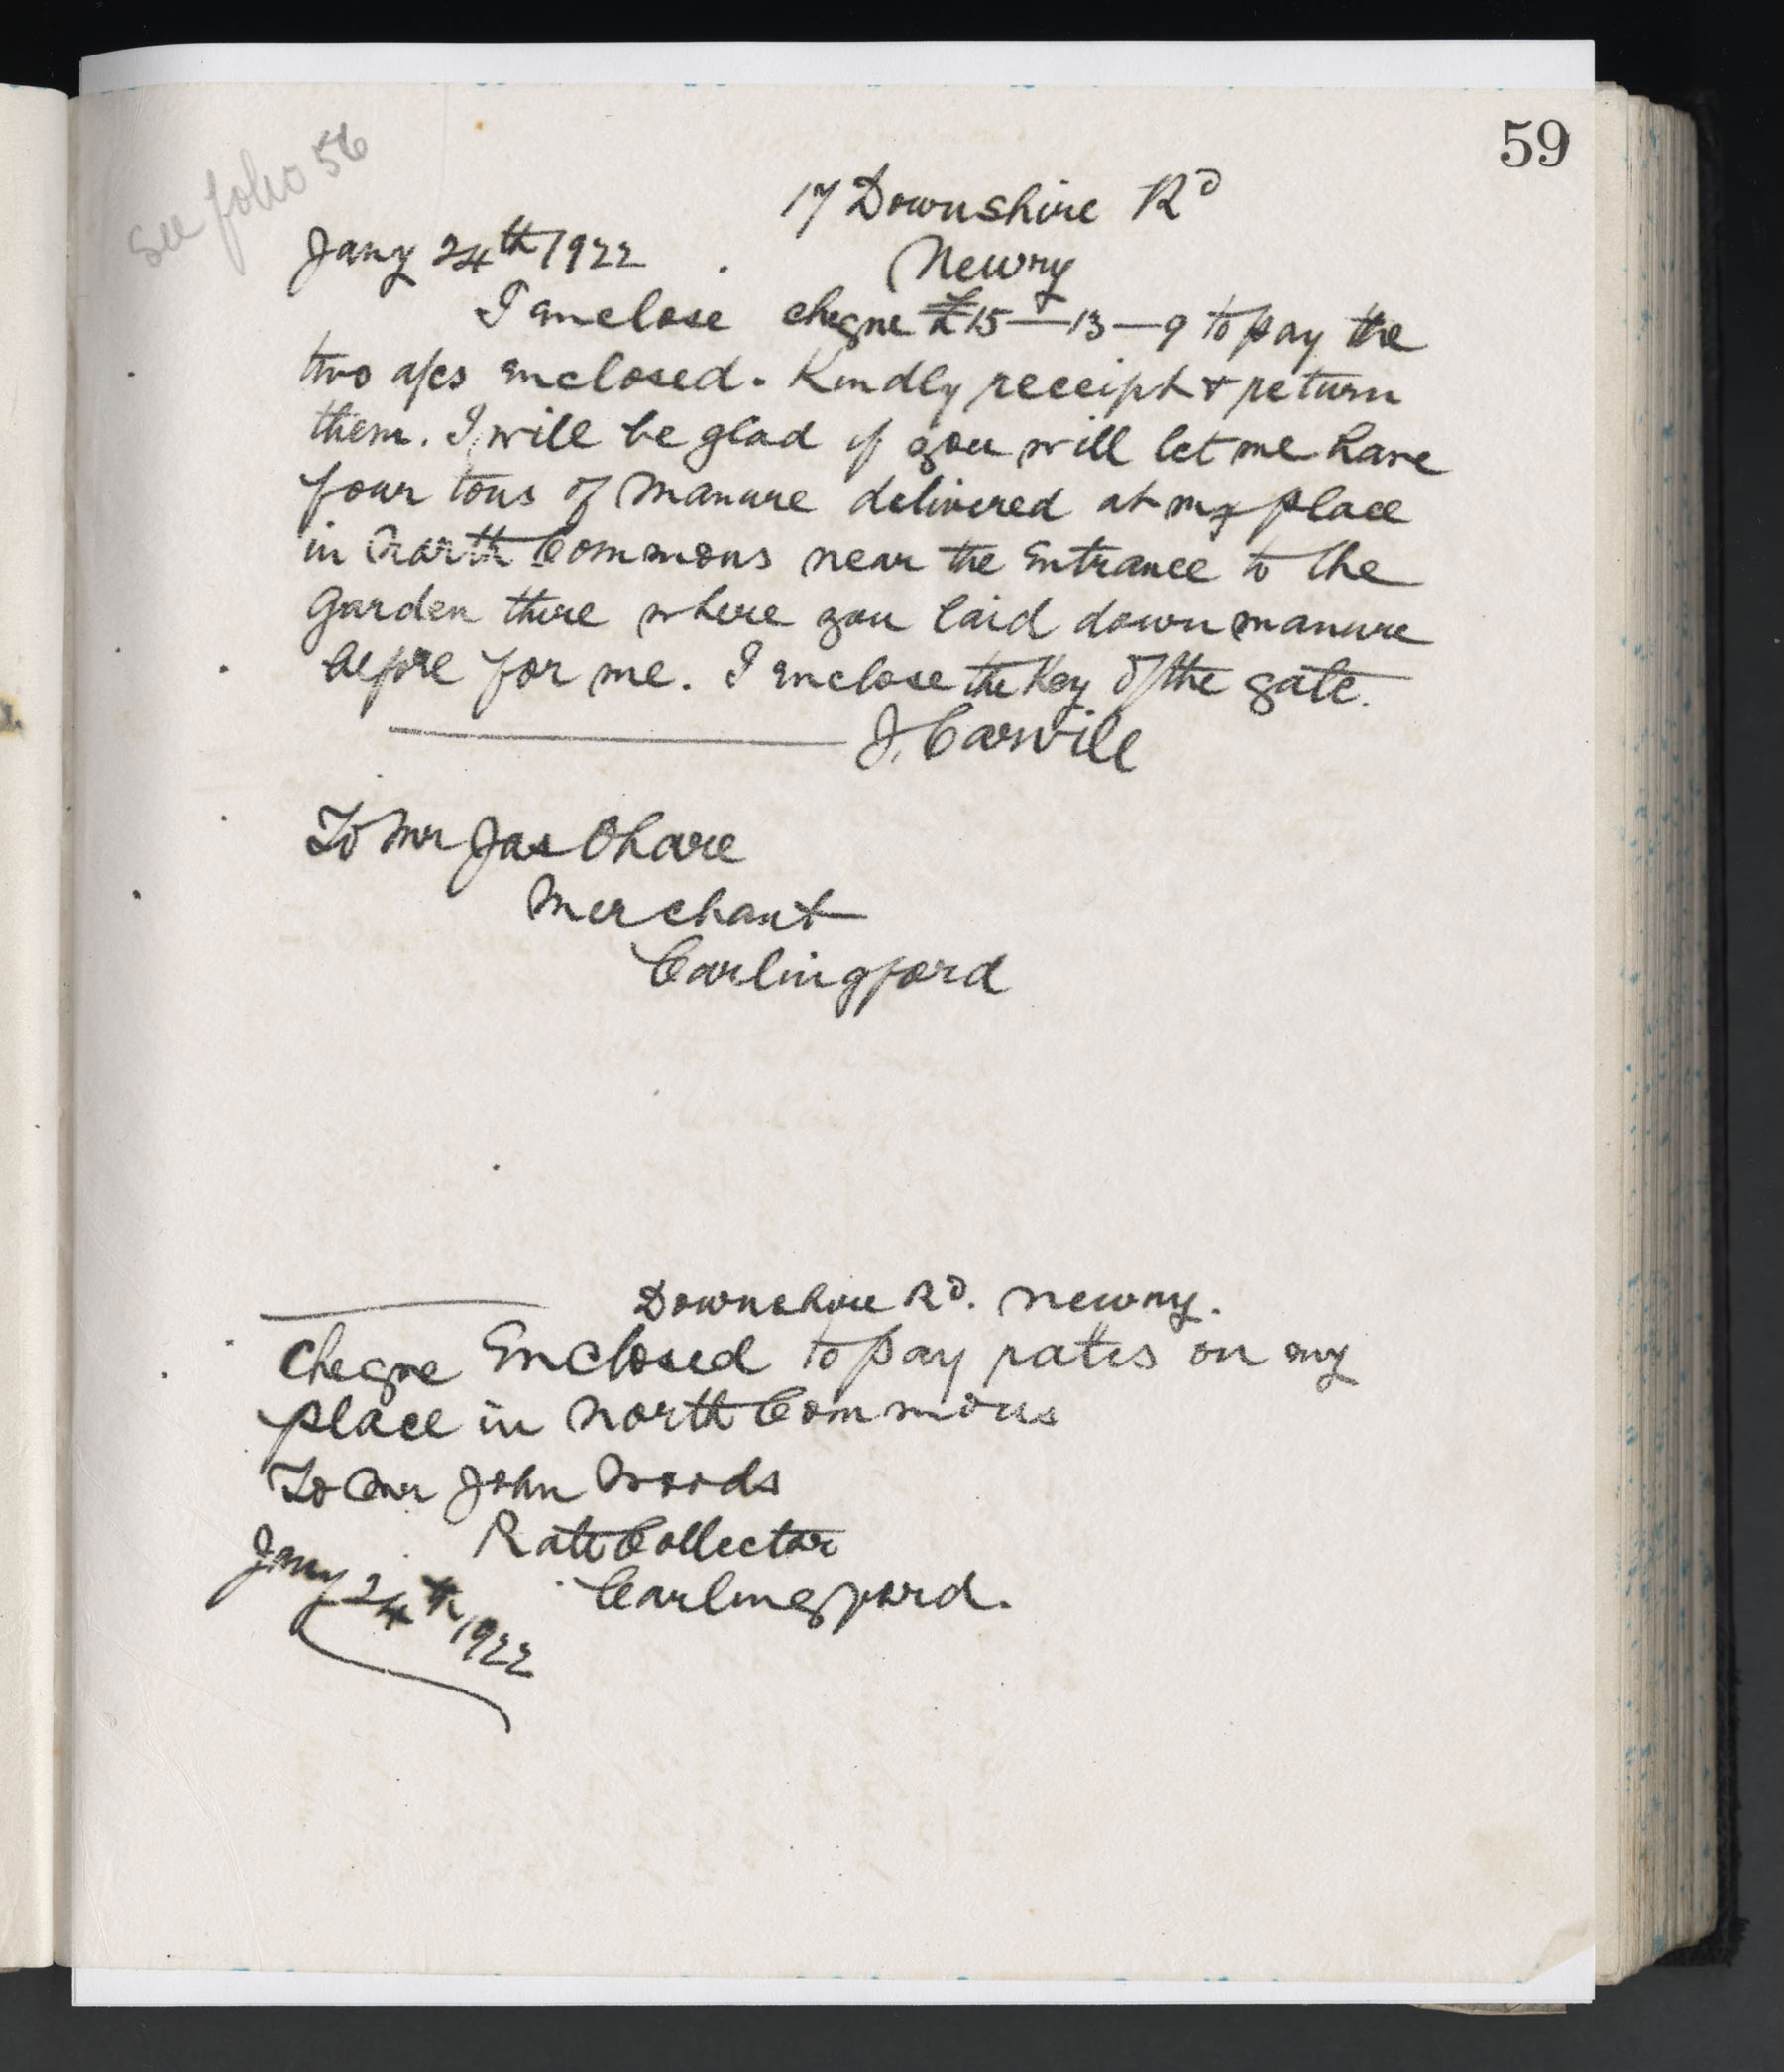 59
See folio 56
17 Downshire Rd
Jany 24th 1922
Newry
I enclose cheque £15-13-9 to pay the
two a/cs enclosed. Kindly receipt & return
them. I will be glad if you will let me have
four tons of manure delivered at my place
in North Commons near the entrance to the
Garden there where you laid down manure
before for me. I enclose the key of the gate.
J. Carvill
To Mr Jas Ohare
Merchant
Carlingford
Downshire Rd. Newry.
Cheque Enclosed to pay rates on my
place in North Commons
To Mr John Woods
Rate Collector
Carlingford.
Jany 24th 1922